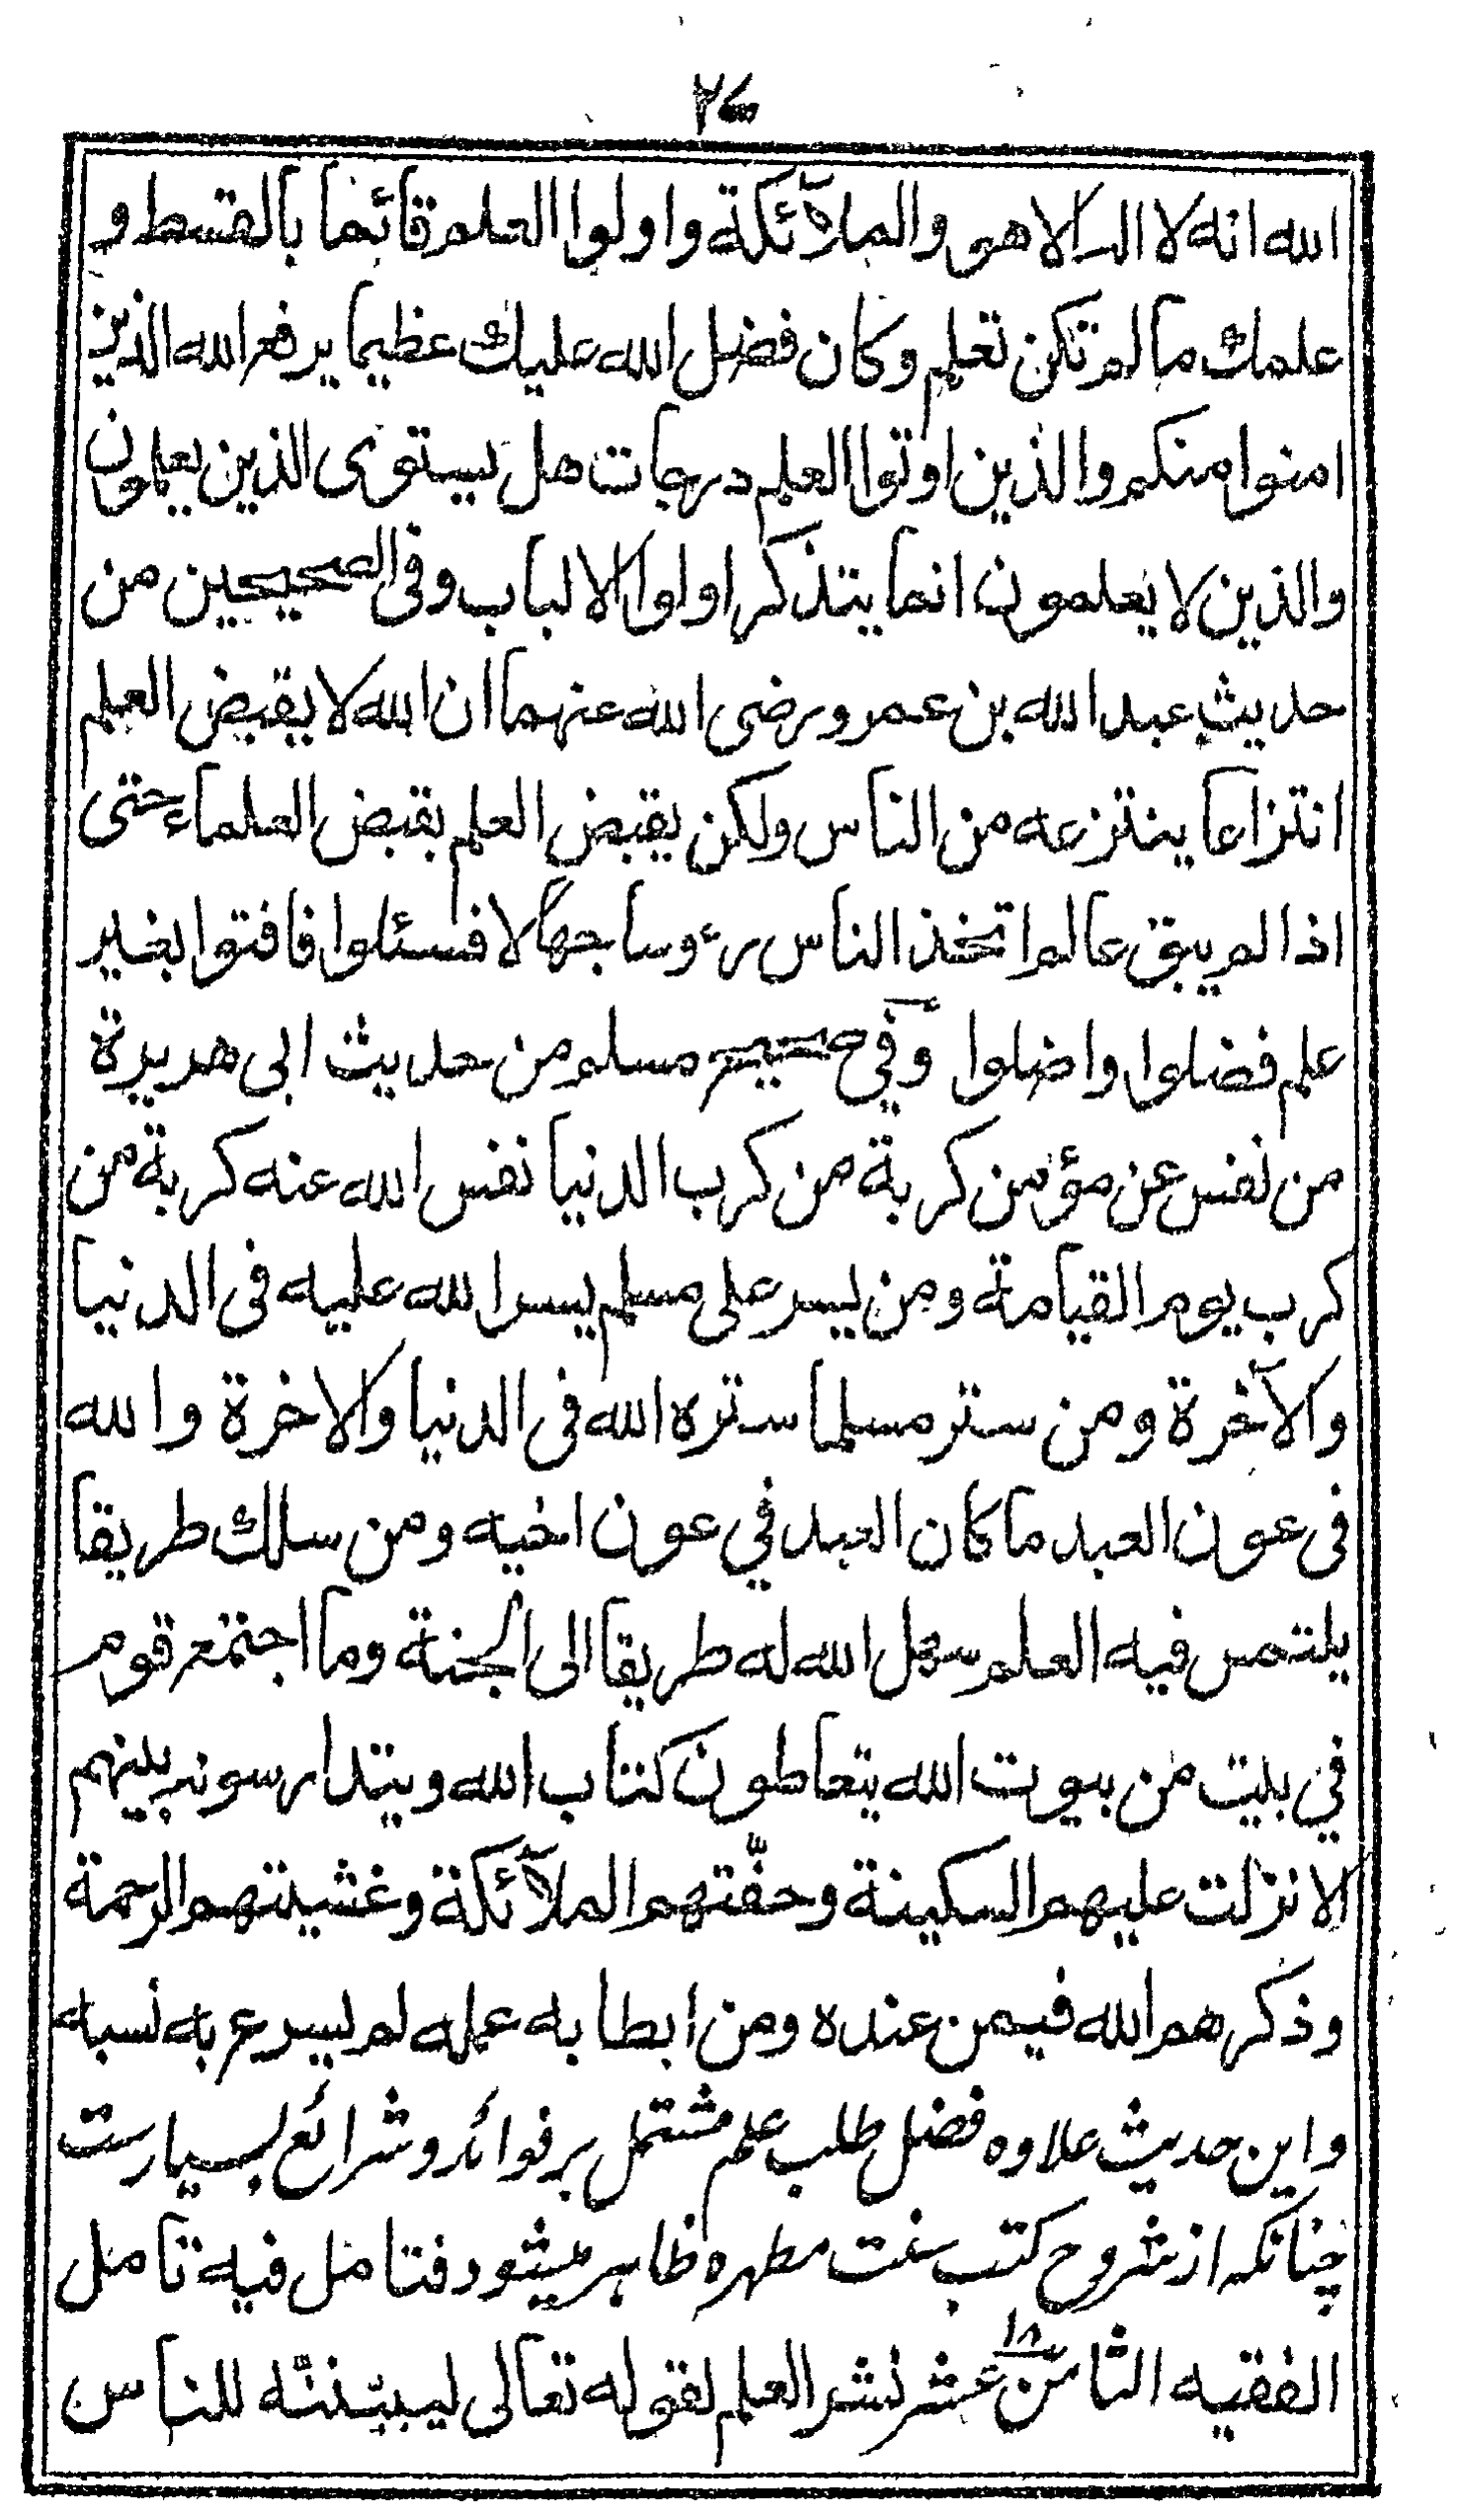 ۲۶
الله انه لا اله الا هو والملآئكة واولوا العلم قائما بالقسط و
علمك ما لم تكن تعلم وكان فضل الله عليك عظيما يرفع الله الذين
امنوا منكم والذين اوتوا العلم درجات هل يستوى الذين يعلمون
والذين لا يعلمون انما يتذكر اولوا الالباب وفى الصحيحين من
حديث عبد الله بن عمرو رضى الله عنهما ان الله لا يقبض العلم
انتزاعا ينتزعه من الناس ولكن يقبض العلم بقبض العلماء حتى
اذا لم يبق عالم اتخذ الناس رءوسا جهالا فسئلوا فافتوا بغير
علم فضلوا واضلوا وفي صحيح مسلم من حديث ابى هريرة
من نفس عن مؤمن كربة من كرب الدنيا نفس الله عنه كربة من
كرب يوم القيامة ومن يسر على مسلم يسر الله عليه فى الدنيا
والآخرة ومن ستر مسلما ستره الله فى الدنيا والاخرة والله
فى عون العبد ما كان العبد في عون اخيه ومن سلك طريقا
يلتمس فيه العلم سهل الله له طريقا الى الجنة وما اجتمع قوم
في بيت من بيوت الله يتعاطون كتاب الله ويتدارسونه بينهم
الا نزلت عليهم السكينة وحفّتهم الملآئكة وغشيتهم الرحمة
وذكرهم الله فيمن عنده ومن ابطا به عمله لم يسرع به نسبه
واین حدیث علاوه فضل طلب علم مشتمل بر فوائد و شرائع بسیارست
چنانکه از شروح کتب سنت مطهره ظاهر میشود فتامل فيه تامل
الفقيه الثامن عشر ۱۸ نشر العلم لقوله تعالى ليبيننّه للناس